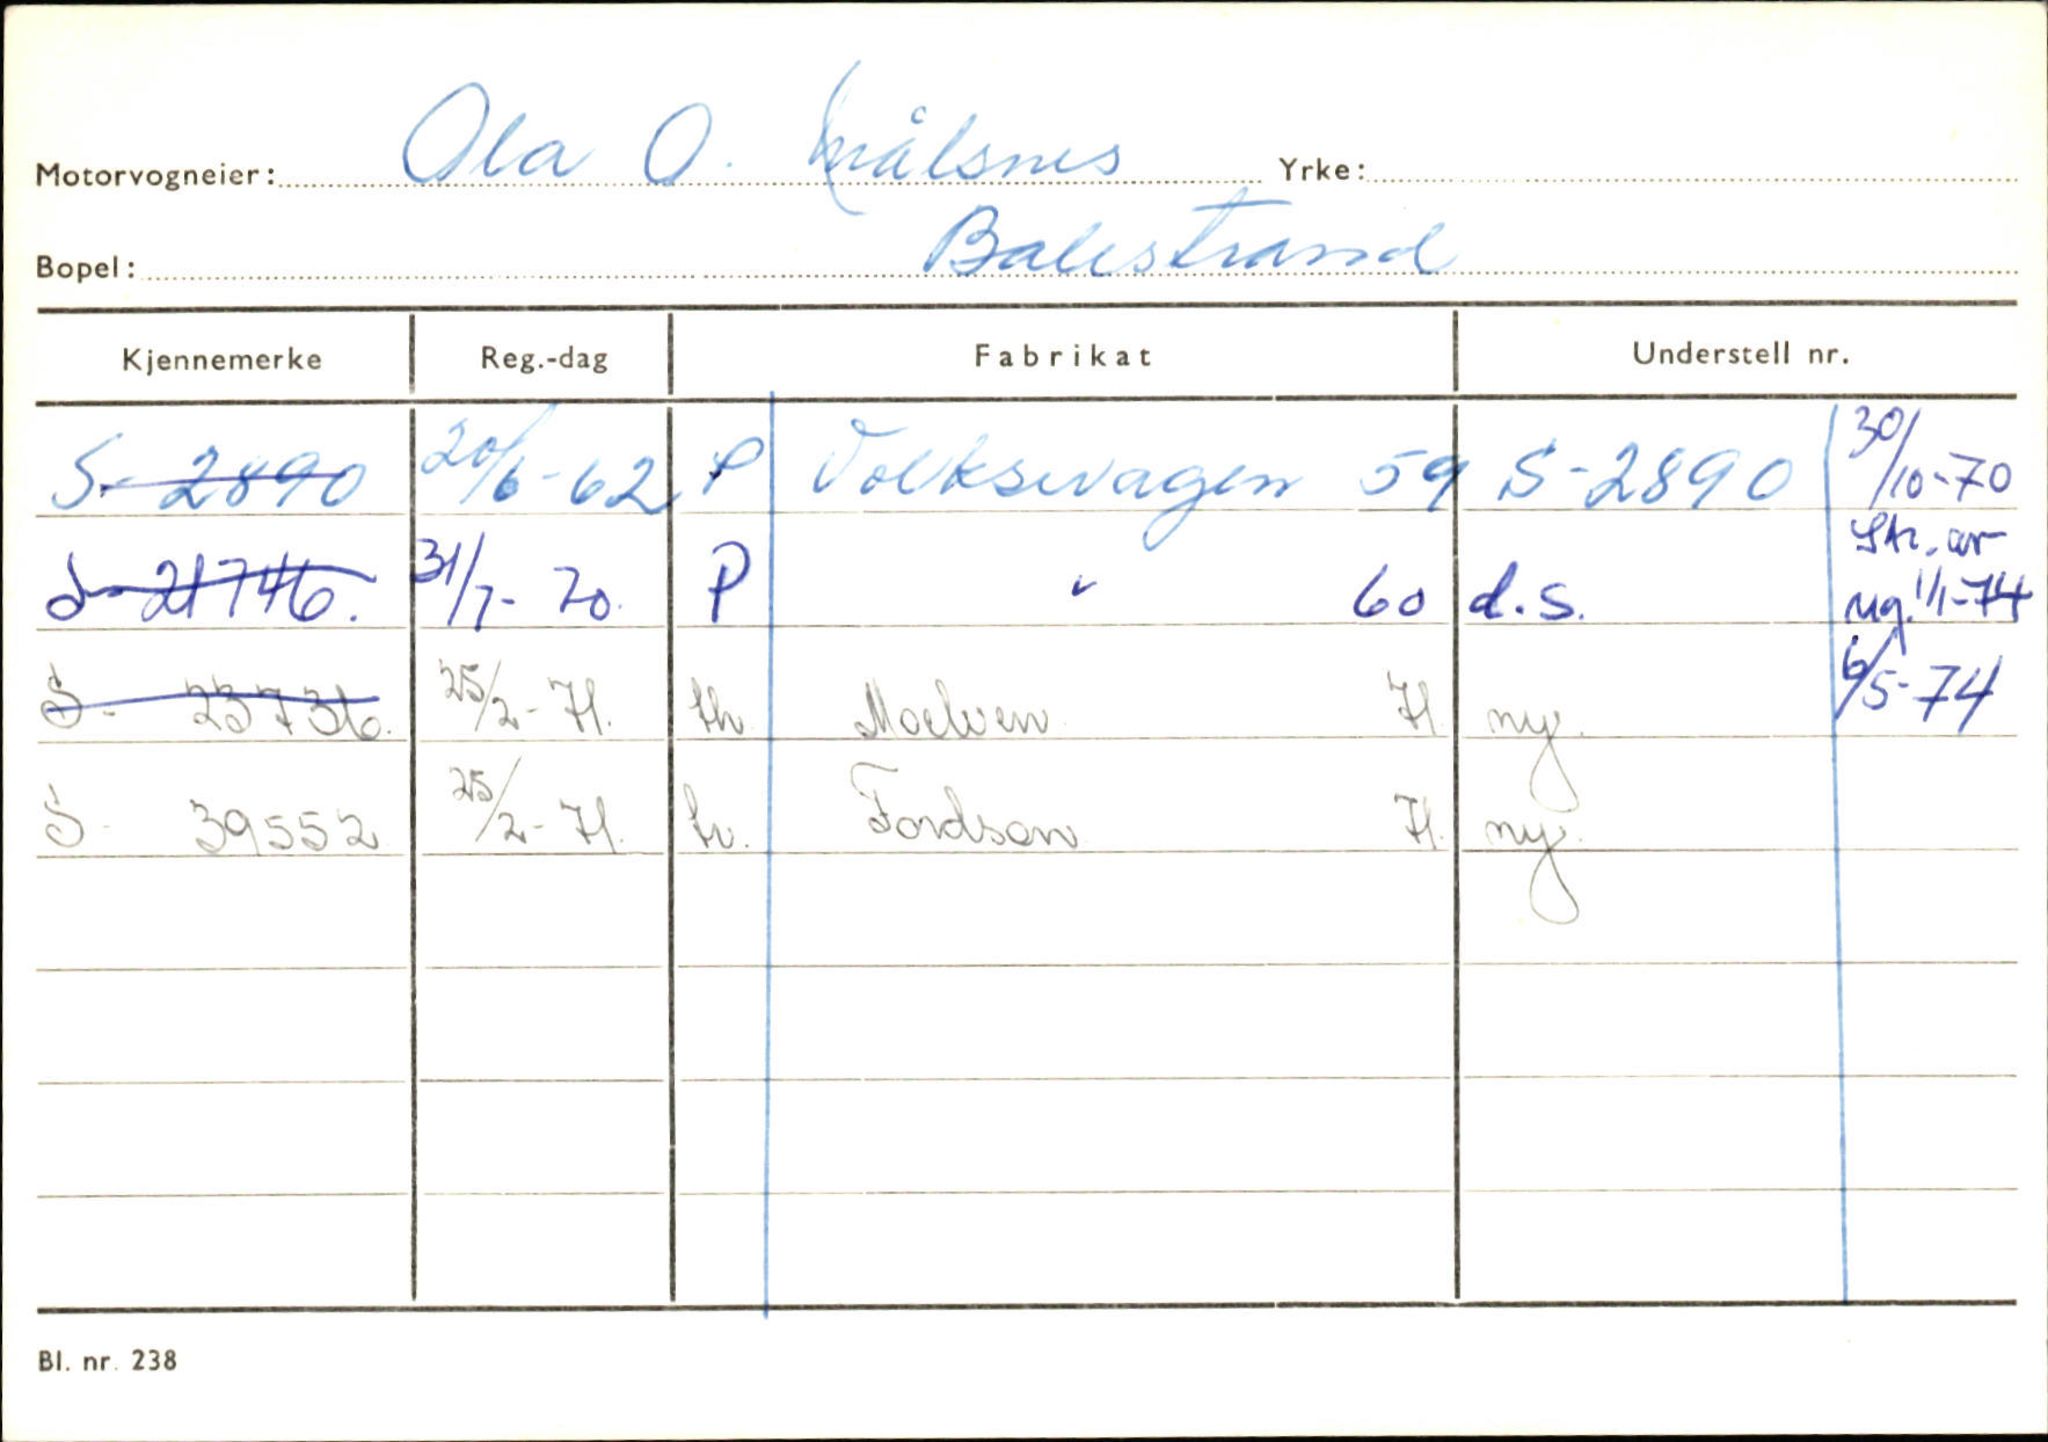 Motorvogneier: Ola O. Målsnes Yrke:
Bopel: Balestrand
Kjennemerke Reg.-dag Fabrikat Understell nr.
S- 2890 20/6-62 P Volkswagen 59 S-2890 30/10-70
S- 21746. 31/7-70. P " 60 d.s. Str. av reg. 1/1-74
S- 23736. 25/2-71. th Moelven 71 ny. 6/5-74
S- 39552 25/2-71. tr. Fordson 71. ny.
Bl. nr. 238